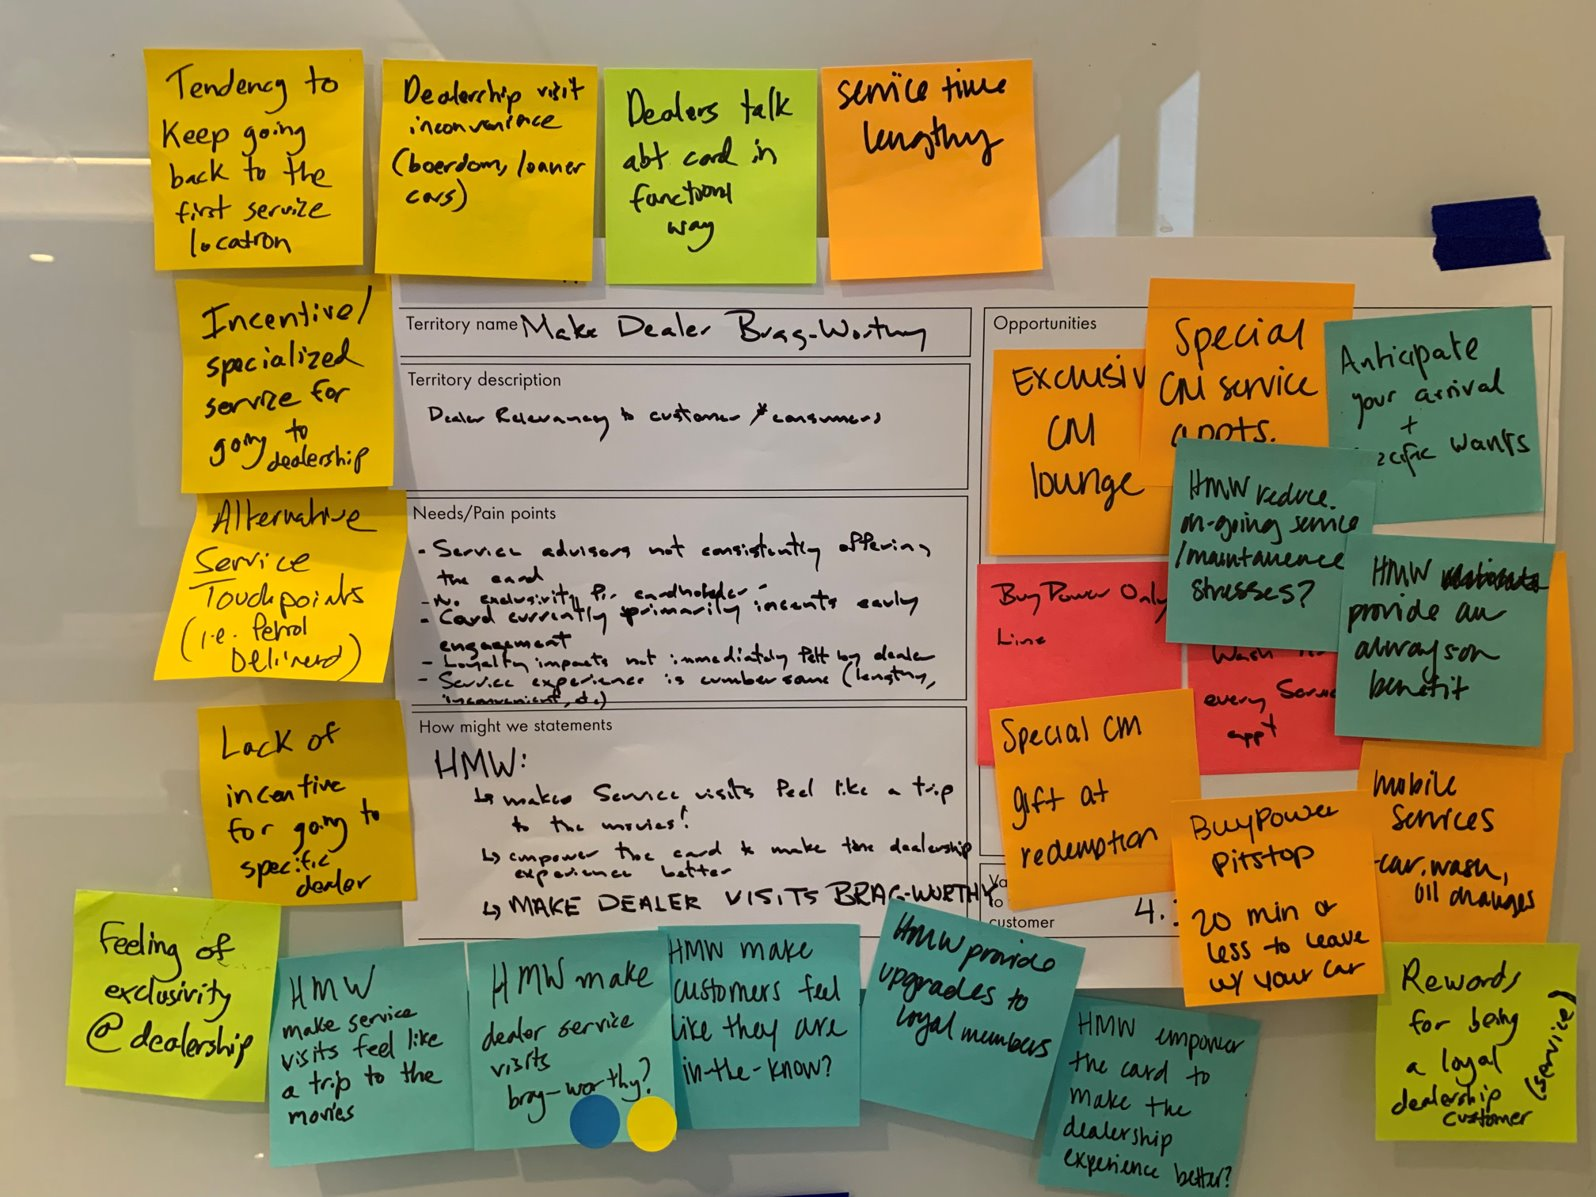 Tendency to
Keep going
back to the
first service
location
Dealership visit
inconvenience
(boerdom, loaner
cars)
Dealers talk
abt card in
functional
way
service time
lengthy
Incentive/
specialized
service for
going to
dealership
Alternative
Service
Touchpoints
(i.e. Petrol
Delivered)
Lack of
incentive
for going to
specific
dealer
Feeling of
exclusivity
@ dealership
Territory name Make Dealer Brag-Worthy
Territory description
Dealer Relevancy to customer & consumers
Needs/Pain points
- Service advisors not consistently offering
the card
- No exclusivity for cardholder
- Card currently primarily incents early
engagement
- Loyalty impacts not immediately felt by dealer
- Service experience is cumbersome (lengthy,
inconvenient, etc.)
How might we statements
HMW:
↳ makes Service visits feel like a trip
to the movies!
↳ empower the card to make the dealership
experience better
↳ MAKE DEALER VISITS BRAG-WORTHY
Opportunities
Exclusiv
CM
lounge
Special
CM service
appts.
Anticipate
your arrival
+
wants
HMW reduce
on-going service
/maintanence
stresses?
HMW
provide an
always on
benefit
BuyPower Only
Line
Wash
every Service
appt
Special CM
gift at
redemption
BuyPower
pitstop
20 min or
less to leave
w/ your car
mobile
services
-car wash,
oil changes
Va
to
customer
4.
HMW
make service
visits feel like
a trip to the
movies
HMW make
dealer service
visits
brag-worthy?
HMW make
customers feel
like they are
in-the-know?
HMW provide
upgrades to
loyal members
HMW empower
the card to
make the
dealership
experience better?
Rewards
for being
a loyal
dealership
customer
(service)